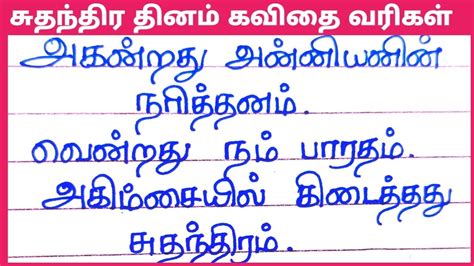 சுதந்திர தினம் கவிதை வரிகள்
அகன்றது அன்னியனின்
நரித்தனம்.
வென்றது நம் பாரதம்.
அகிம்சையில் கிடைத்தது
சுதந்திரம்.